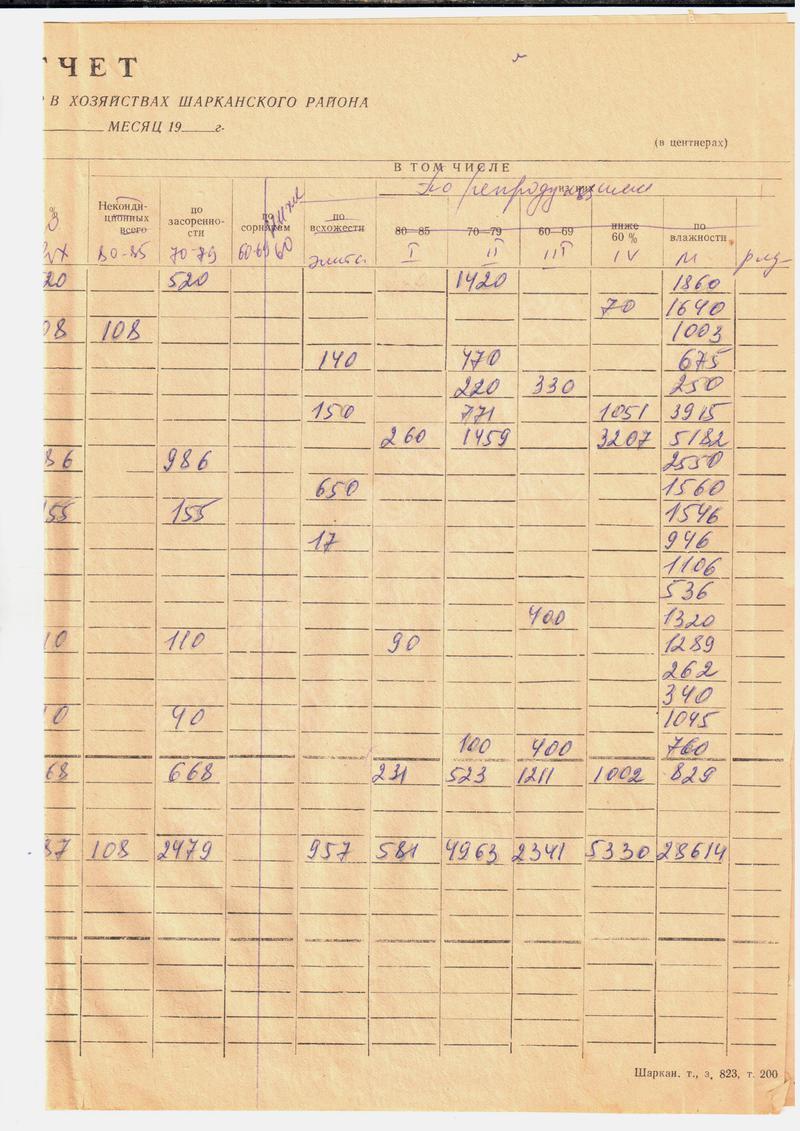 ТЧЕТ
В ХОЗЯЙСТВАХ ШАРКАНСКОГО РАЙОНА
МЕСЯЦ 19 г.
(в центнерах)
В ТОМ ЧИСЛЕ
из них
по репродукциям
% Неконди-ционных всего по засоренно-сти по сорнякам по всхожести 80—85 70—79 60—69 ниже 60 % по влажности
80-85 70-79 60-69 ниже 60 элита I II III IV М
20 520 1420 1860
70 1640
08 108 1003
140 470 675
220 330 250
150 771 1051 3915
260 1459 3207 5182
86 986 2550
650 1560
155 155 1546
17 946
1106
536
400 1320
10 110 90 1289
262
340
0 40 1045
100 400 760
68 668 231 523 1211 1002 829
87 108 2479 957 581 4963 2341 5330 28614
Шаркан. т., з. 823, т. 200